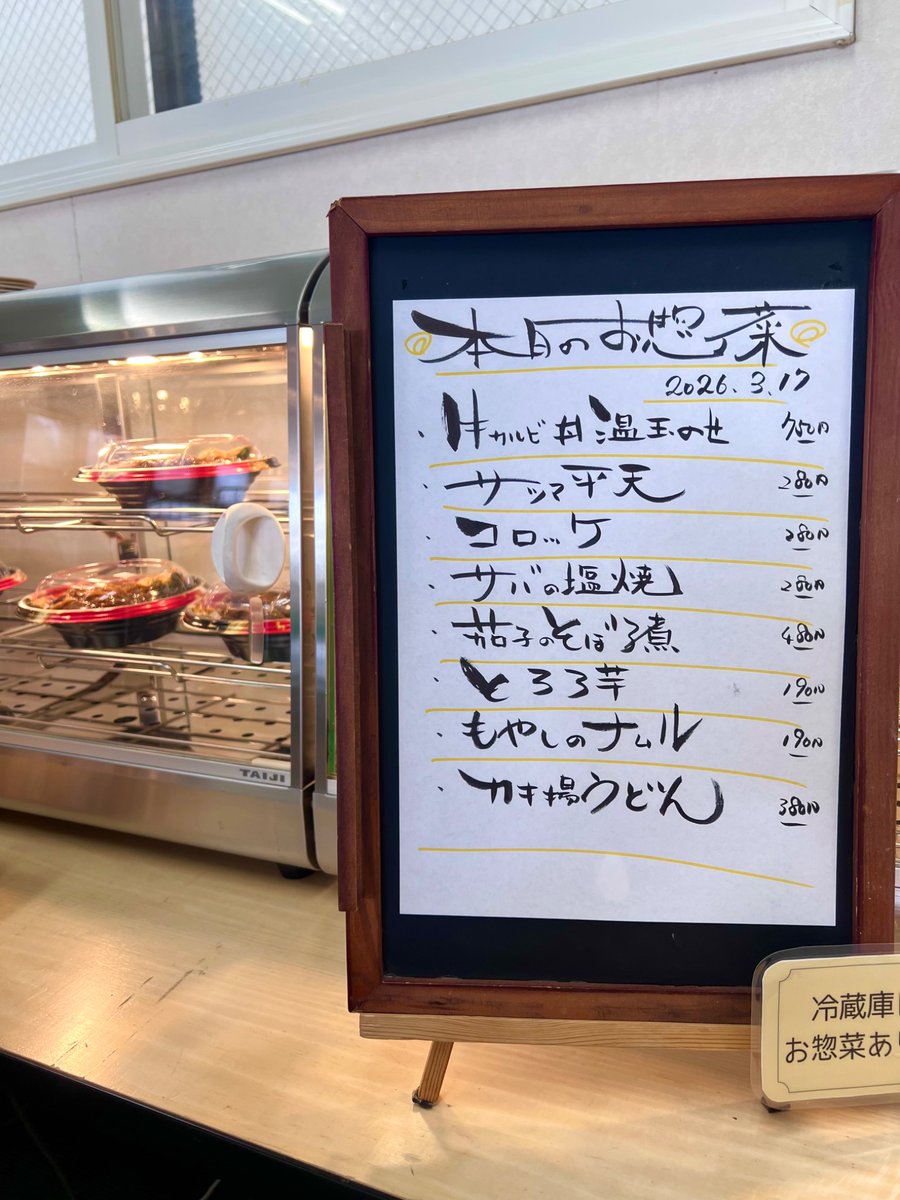 本日のお惣菜
2026.3.17
・牛カルビ丼温玉のせ 750円
・サツマ平天 280円
・コロッケ 280円
・サバの塩焼 280円
・茄子のそぼろ煮 480円
・とろろ芋 190円
・もやしのナムル 190円
・カキ揚うどん 380円
TAIJI
冷蔵庫に
お惣菜あり